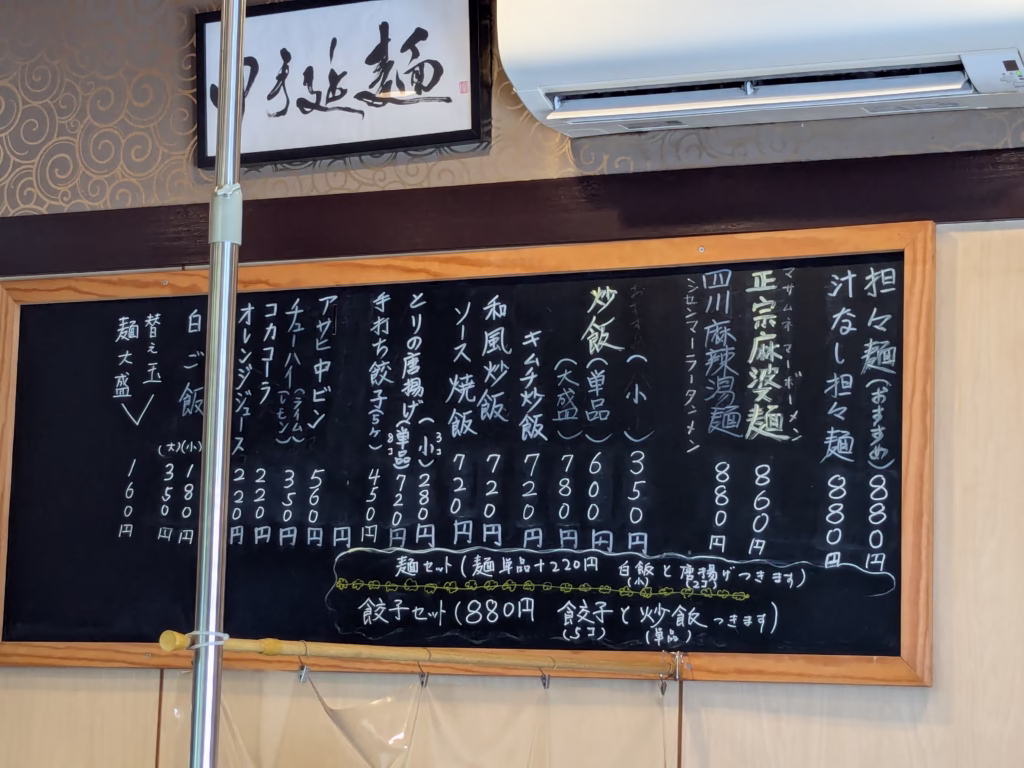 手延麺
担々麺(おすすめ)880円
汁なし担々麺 880円
マサムネマーボーメン
正宗麻婆麺 860円
四川麻辣湯麺 880円
シセンマーラータンメン
(小)350円
炒飯(単品)600円
(大盛)780円
キムチ炒飯 720円
和風炒飯 720円
ソース焼飯 720円
とりの唐揚げ(小)3コ 280円
(単品)8コ 720円
手打ち餃子(5ヶ)450円
円
アサヒ中ビン 560円
チューハイ(ライム)(レモン)350円
コカコーラ 220円
オレンジジュース 220円
白ご飯(小)180円
(大)350円
替え玉
麺大盛 160円
麺セット(麺単品+220円 白飯(小)と唐揚げ(2コ)つきます)
餃子セット(880円 餃子(5コ)と炒飯(単品)つきます)